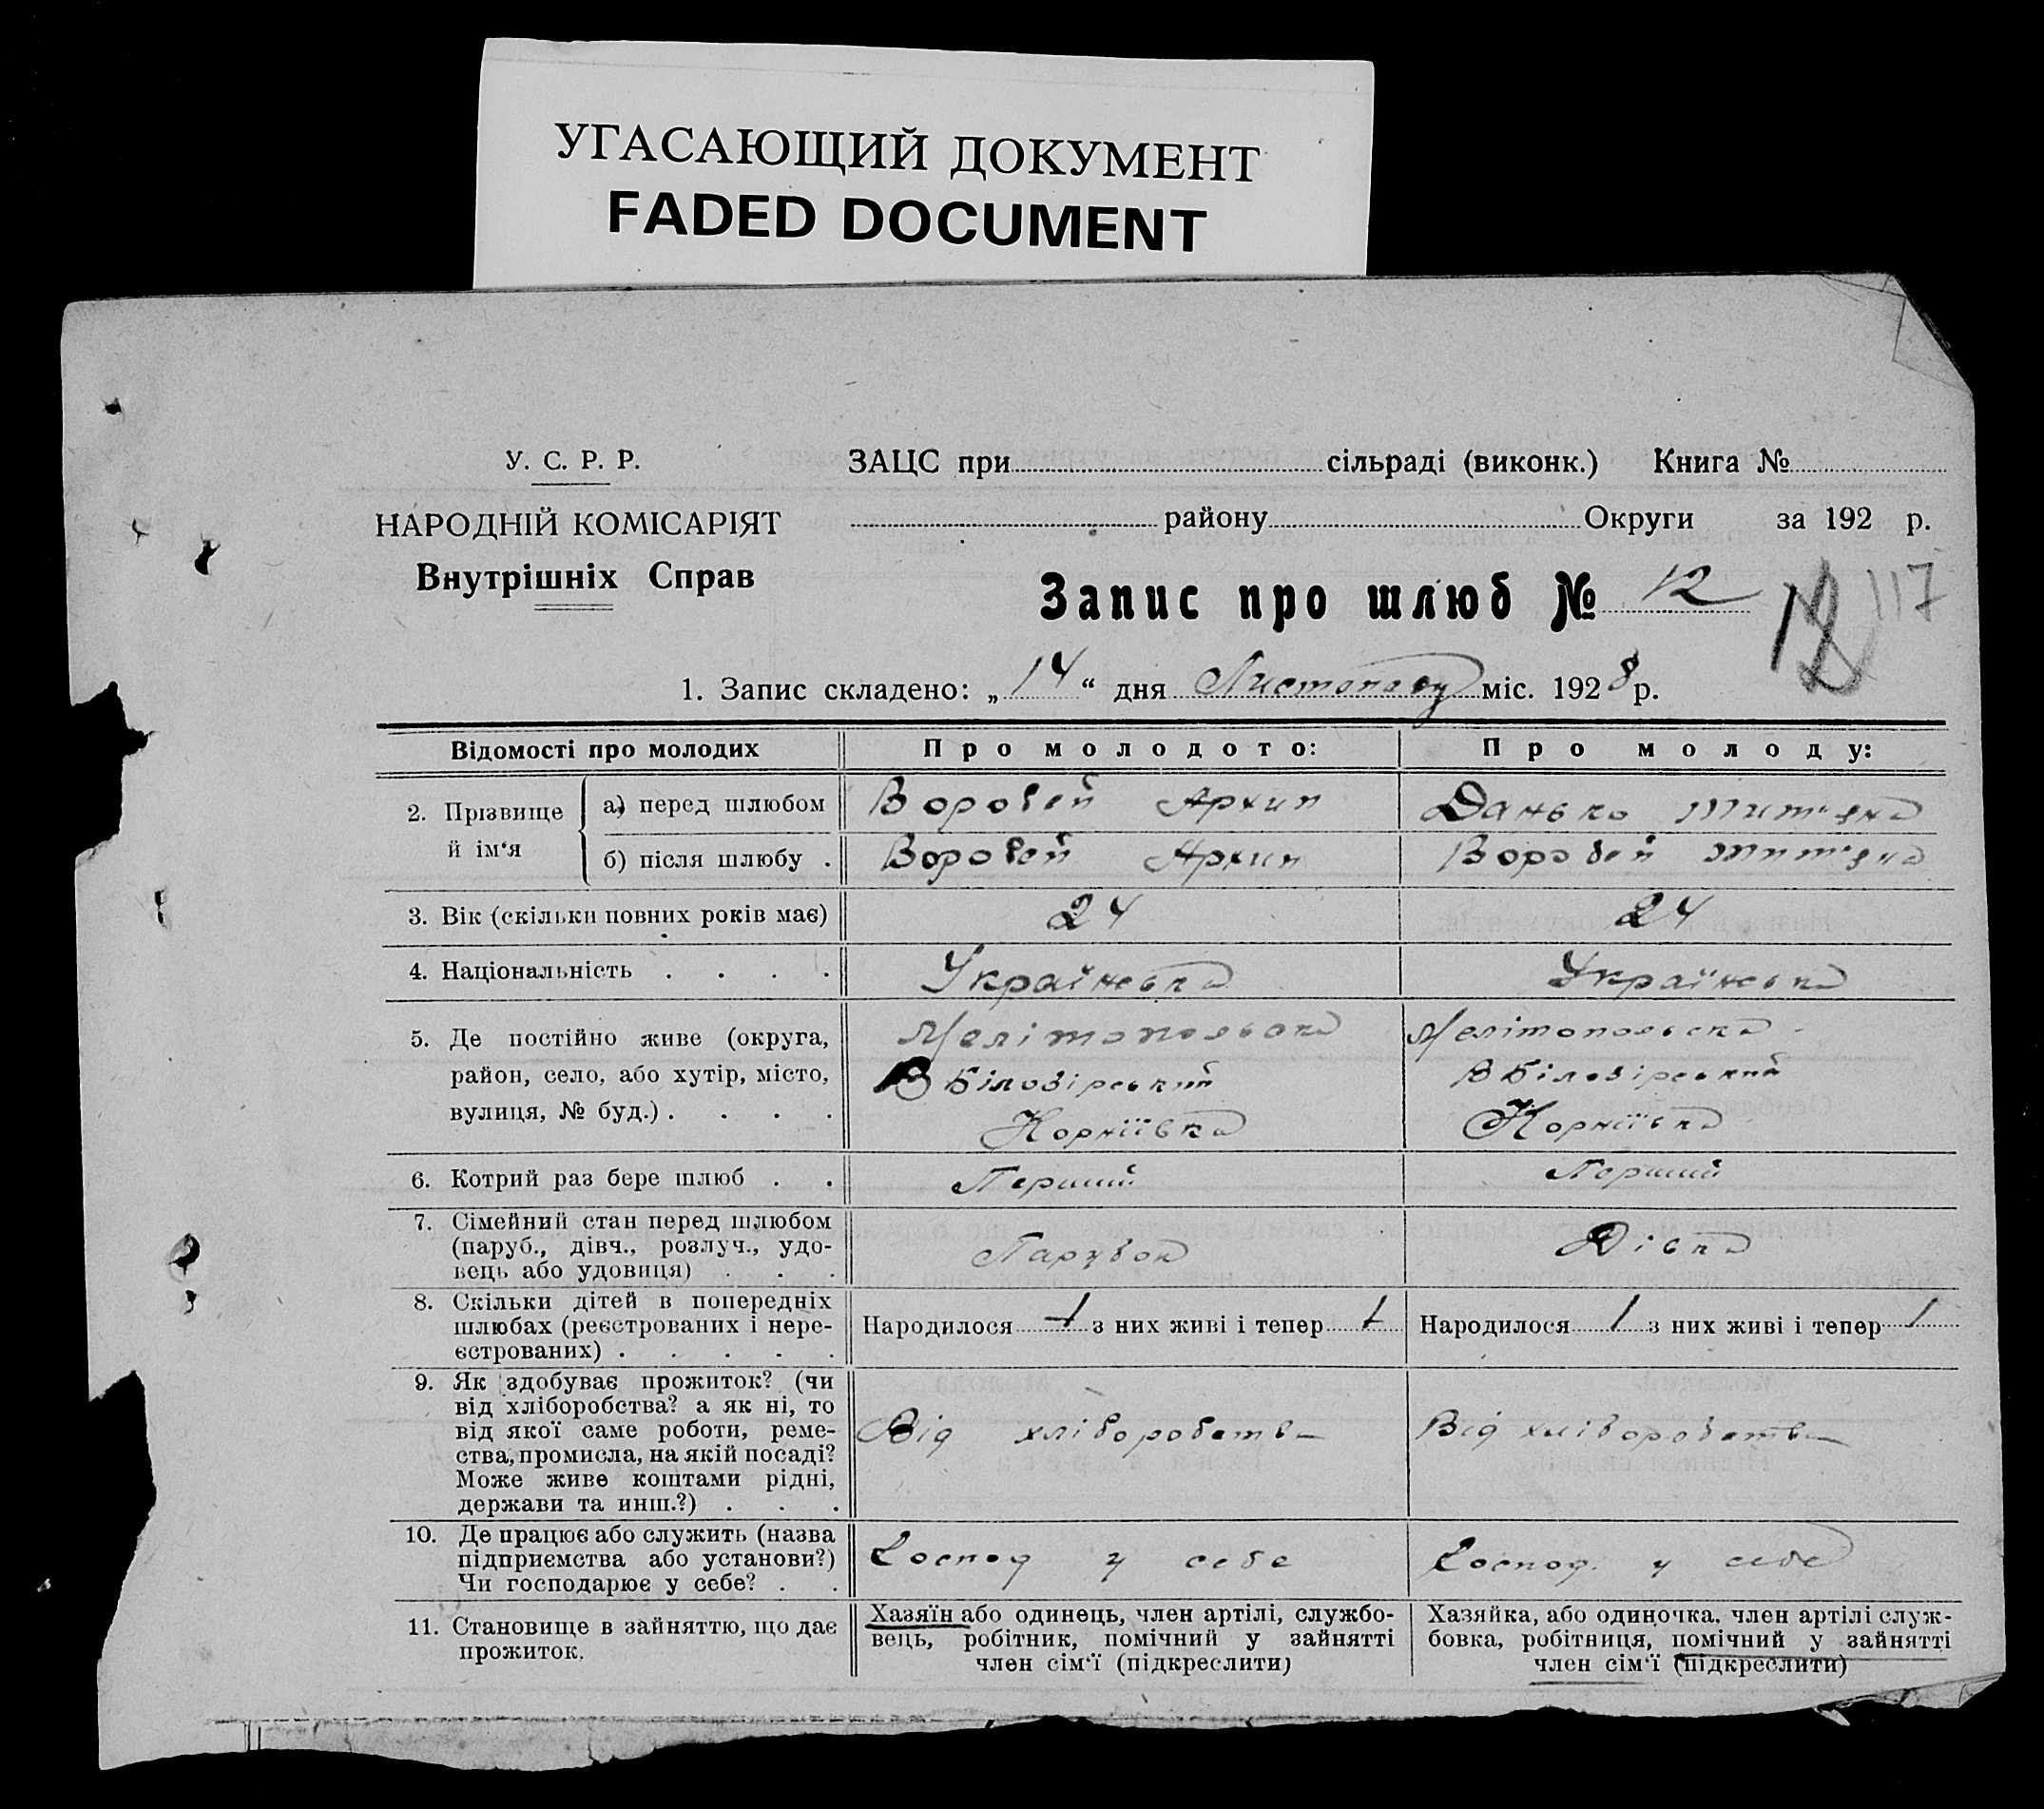 УГАСАЮЩИЙ ДОКУМЕНТ
FADED DOCUMENT
У. С. Р. Р.
НАРОДНІЙ КОМІСАРІЯТ
Внутрішніх Справ
ЗАЦС при сільраді (виконк.) Книга №
району Округи за 192 р.
Запис про шлюб № 12
12 117
1. Запис складено: „14“ дня Листопаду міс. 1928 р.
Відомості про молодих
Про молодого:
Про молоду:
2. Прізвище й ім‘я
а) перед шлюбом
Воробей Архип
Данько Тит‘яна
б) після шлюбу .
Воробей Архип
Воробей Тит‘яна
3. Вік (скільки повних років має)
24
24
4. Національність . . . .
Українська
Українська
5. Де постійно живе (округа,
район, село, або хутір, місто,
вулиця, № буд.) . . . .
Мелітопольска
В Білозірський
Корніївка
Мелітопольска
В Білозірський
Корніївка
6. Котрий раз бере шлюб . .
Перший
Перший
7. Сімейний стан перед шлюбом
(паруб., дівч., розлуч., удо-
вець або удовиця) . . .
Парубок
Дівка
8. Скільки дітей в попередніх
шлюбах (реєстрованих і нере-
єстрованих) . . . . .
Народилося з них живі і тепер
Народилося з них живі і тепер
9. Як здобуває прожиток? (чи
від хліборобства? а як ні, то
від якої саме роботи, реме-
ства, промисла, на якій посаді?
Може живе коштами рідні,
держави та инш.?) . . .
Від хліборобств
Від хліборобств
10. Де працює або служить (назва
підприємства або установи?)
Чи господарює у себе? . .
Господ у себе
Господ. у себе
11. Становище в зайняттю, що дає
прожиток.
Хазяїн або одинець, член артілі, службо-
вець, робітник, помічний у зайнятті
член сім‘ї (підкреслити)
Хазяйка, або одиночка, член артілі служ-
бовка, робітниця, помічний у зайнятті
член сім‘ї (підкреслити)